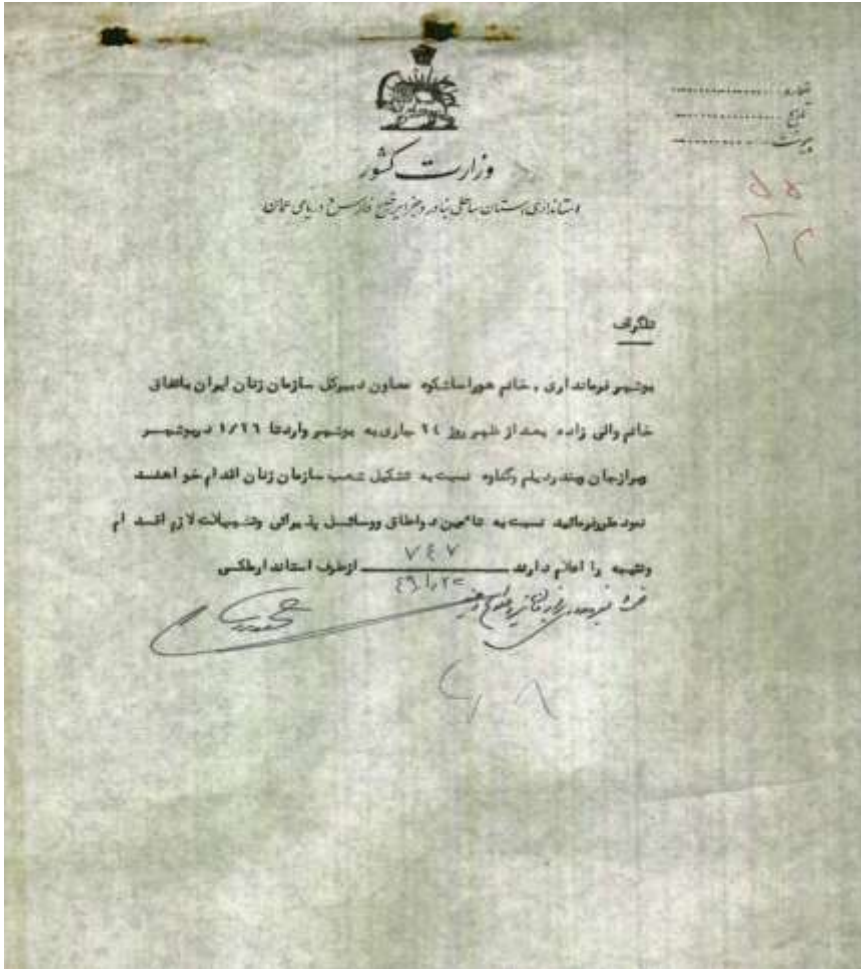 شماره
تاریخ
پیوست
وزارت کشور
استانداری استان ساحلی بنادر و جزایر خلیج فارس و دریای عمان
تلگراف
بوشهر فرمانداری ، خانم هوراسا شکوه معاون دبیرکل سازمان زنان ایران باتفاق
خانم والی زاده بعد از ظهر روز ٢٤ جاری به بوشهر وارد تا ١/٢٦ در بوشهر
وبرازجان وبندردیلم وگناوه نسبت به تشکیل شعب سازمان زنان اقدام خواهند
نمود مقررفرمائید نسبت به تأمین دواطاق ووسائل پذیرائی وتسهیلات لازم اقدام
ونتیجه را اعلام دارند ٧٤٧ ازطرف استاندار
٤٩/١/٢٣